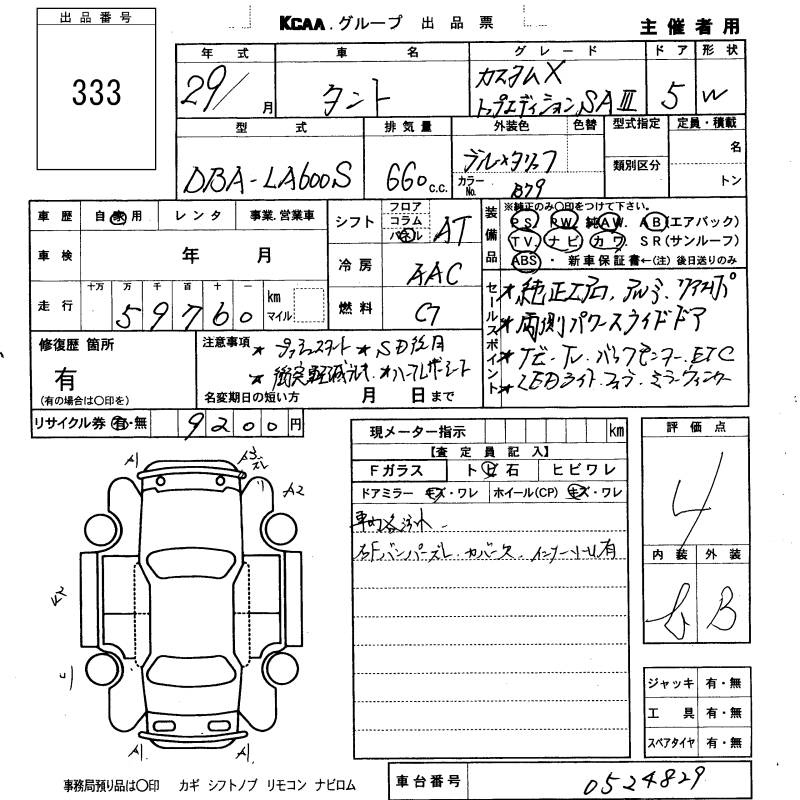 出品番号
KCAA.グループ 出品票
主催者用
333
年式 車名 グレード ドア 形状
29/ 月 タント カスタムX 5 W
トップエディションSAⅢ
型式 排気量 外装色 色替 型式指定 定員・積載
DBA-LA600S 660 c.c. カラーNo. B79 類別区分 名
トン
車歴 自家用 レンタ 事業.営業車
シフト フロア コラム パネル AT
装備品 ※純正のみ○印をつけて下さい。
PS. PW. 純AW. AB(エアバック)
TV. ナビ カワ. SR(サンルーフ)
ABS・ 新車保証書←(注)後日送りのみ
車検 年 月
冷房 AAC
走行 十万 万 千 百 十 一 km マイル
59760
燃料
セールスポイント
★純正エアロ, アルミ,
★両側パワースライドドア
★ナビ・TV・バックモニター・ETC
★LEDライト・フォグ・ミラーウィンカー
修復歴 箇所
有
(有の場合は○印を)
注意事項 ★プッシュスタート ★SD後日
★衝突軽減ブレーキ ★ハーフレザーシート
名変期日の短い方 月 日まで
リサイクル券 有・無 9200円
現メーター指示 km
【査定員記入】
Fガラス トビ石 ヒビワレ
ドアミラー キズ・ワレ ホイール(CP) キズ・ワレ
車内各汚れ
右Fバンパーズレ. カバーズ. インナーシール有
評価点
4
内装 外装
B
A1 A3 ズレ A2
A2
A1 A1
ジャッキ 有・無
工具 有・無
スペアタイヤ 有・無
事務局預り品は○印 カギ シフトノブ リモコン ナビロム
車台番号 0524829